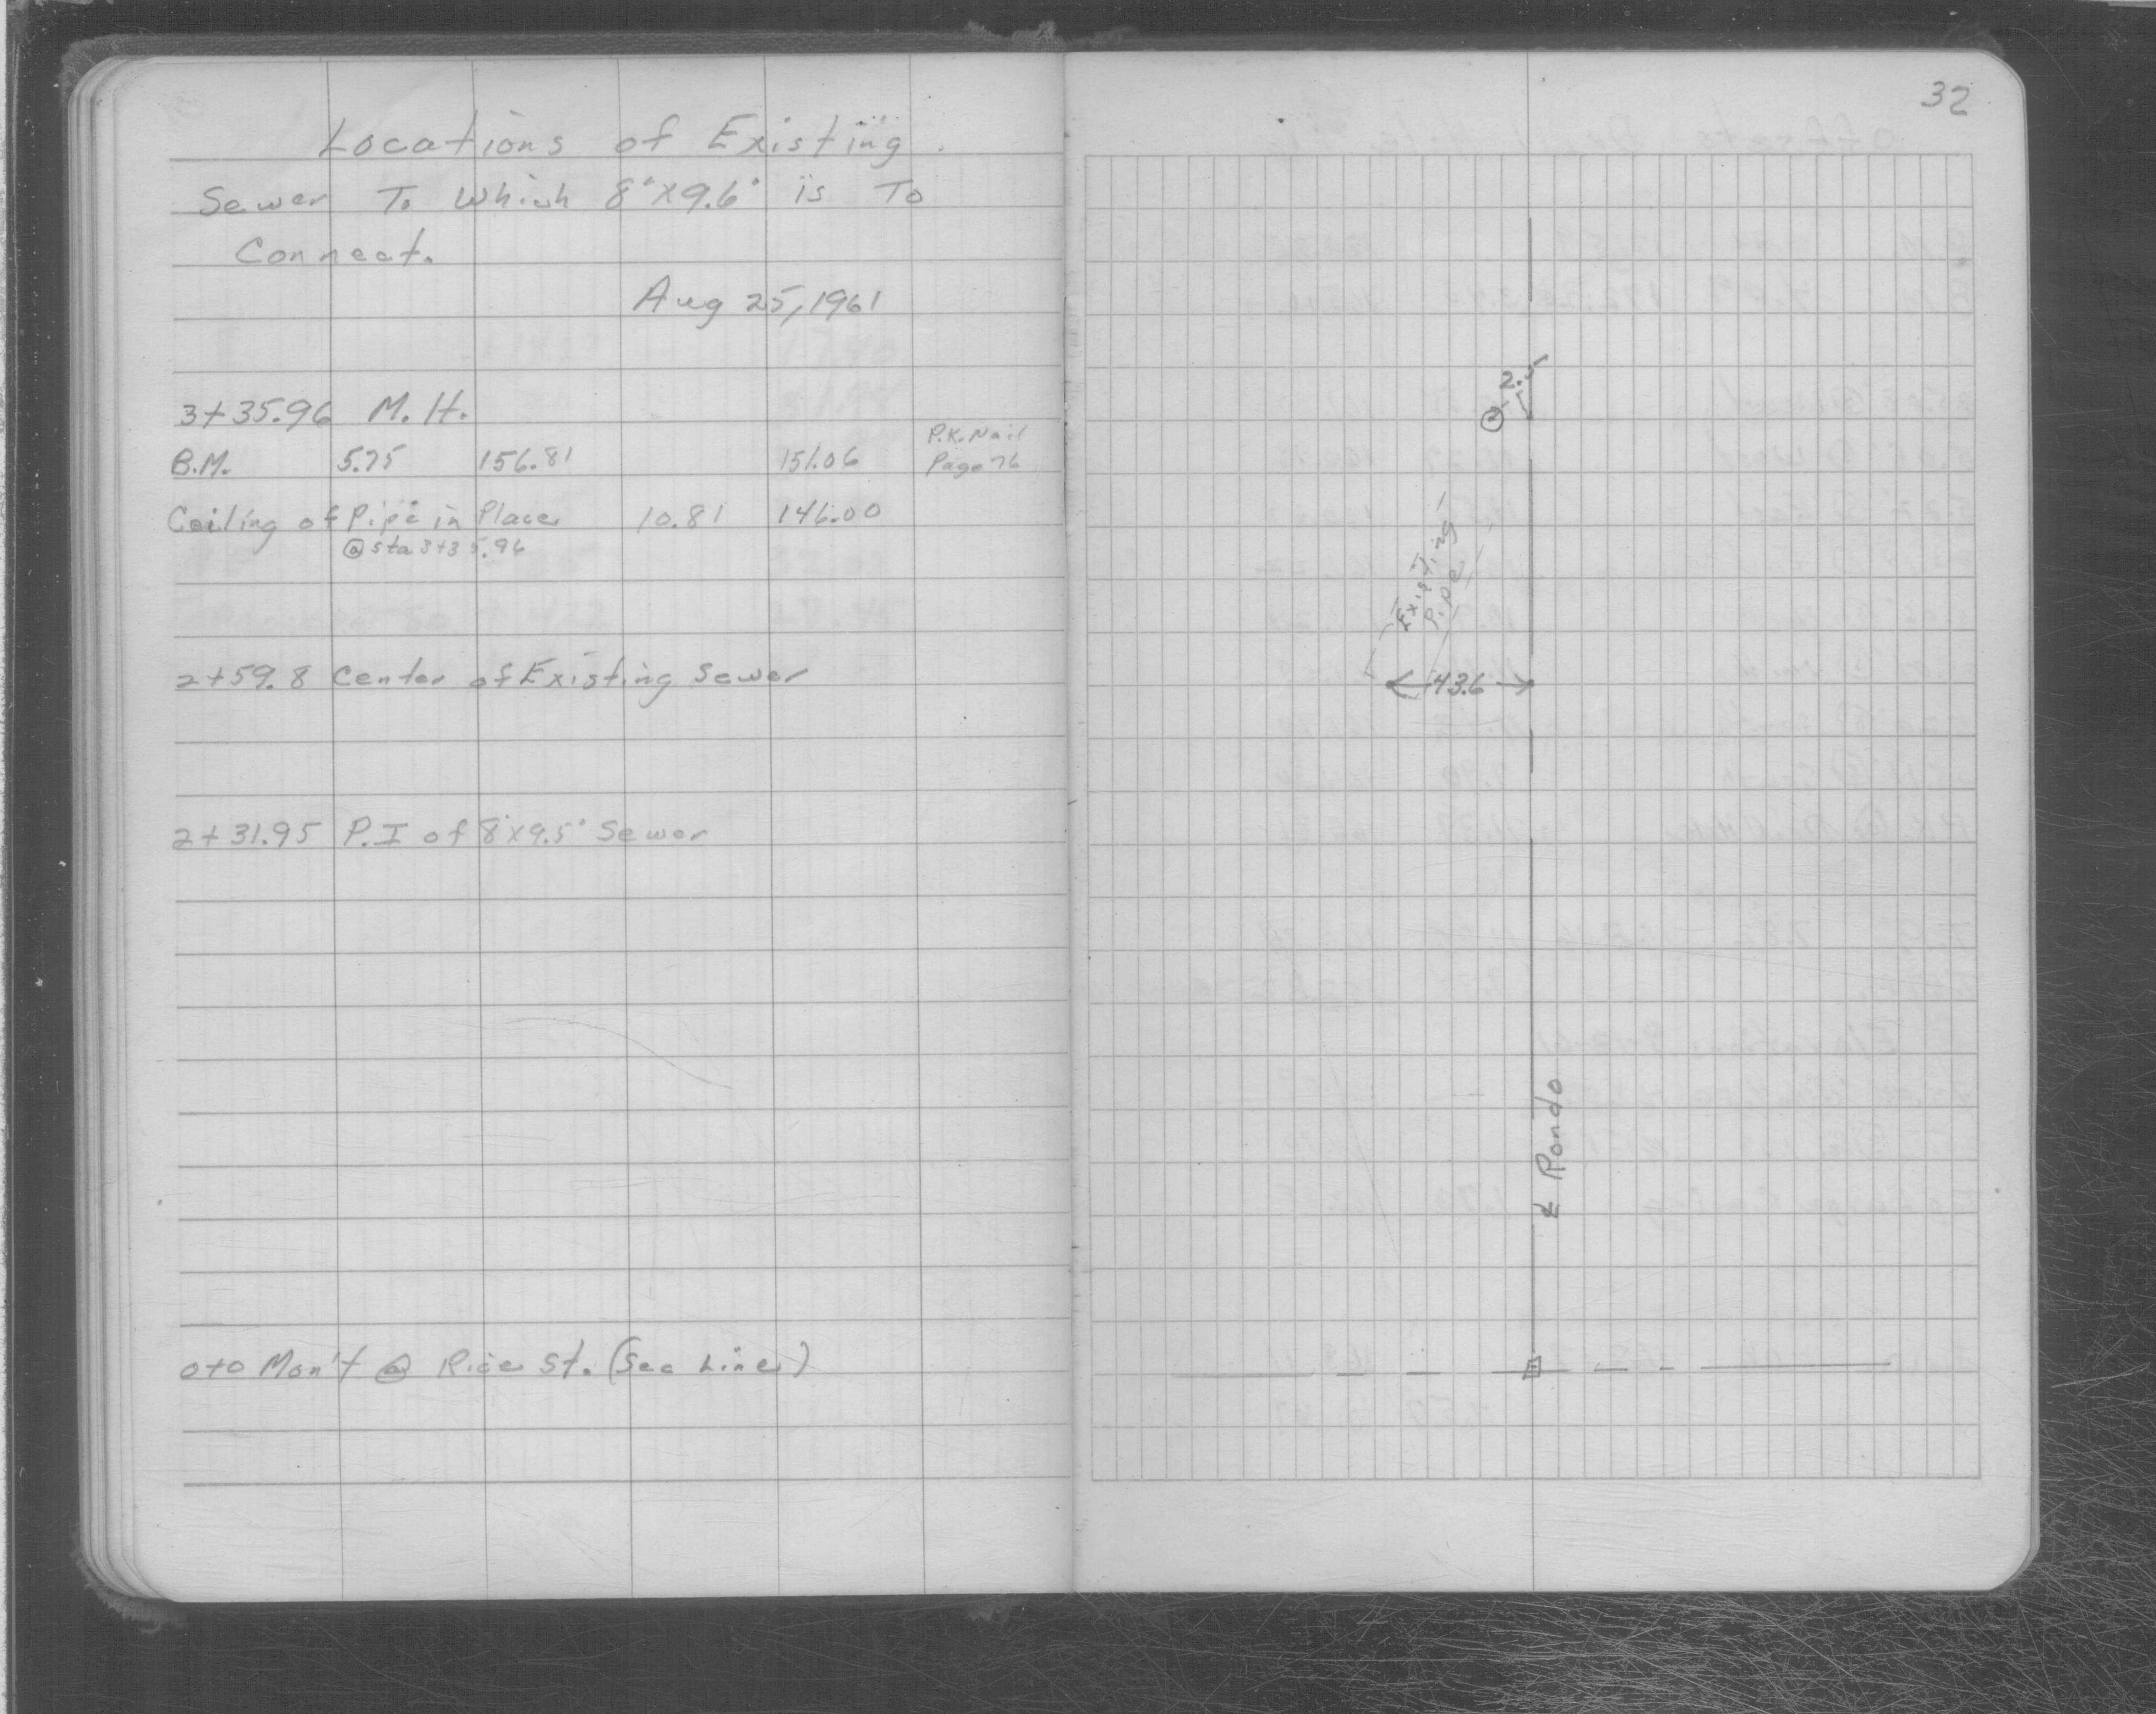 Locations of Existing
Sewer To Which 8'X9.6' is To
Connect.
Aug 25, 1961
3+35.96 M.H.
P.K. Nail
B.M. 5.75 156.81 151.06 Page 76
Ceiling of Pipe in Place 10.81 146.00
@ sta 3+35.96
2+59.8 Center of Existing Sewer
2+31.95 P.I of 8'X9.5' Sewer
0+0 Mon't @ Rice St. (Sec Line)
32
Existing
Pipe
43.6
℄ Rondo